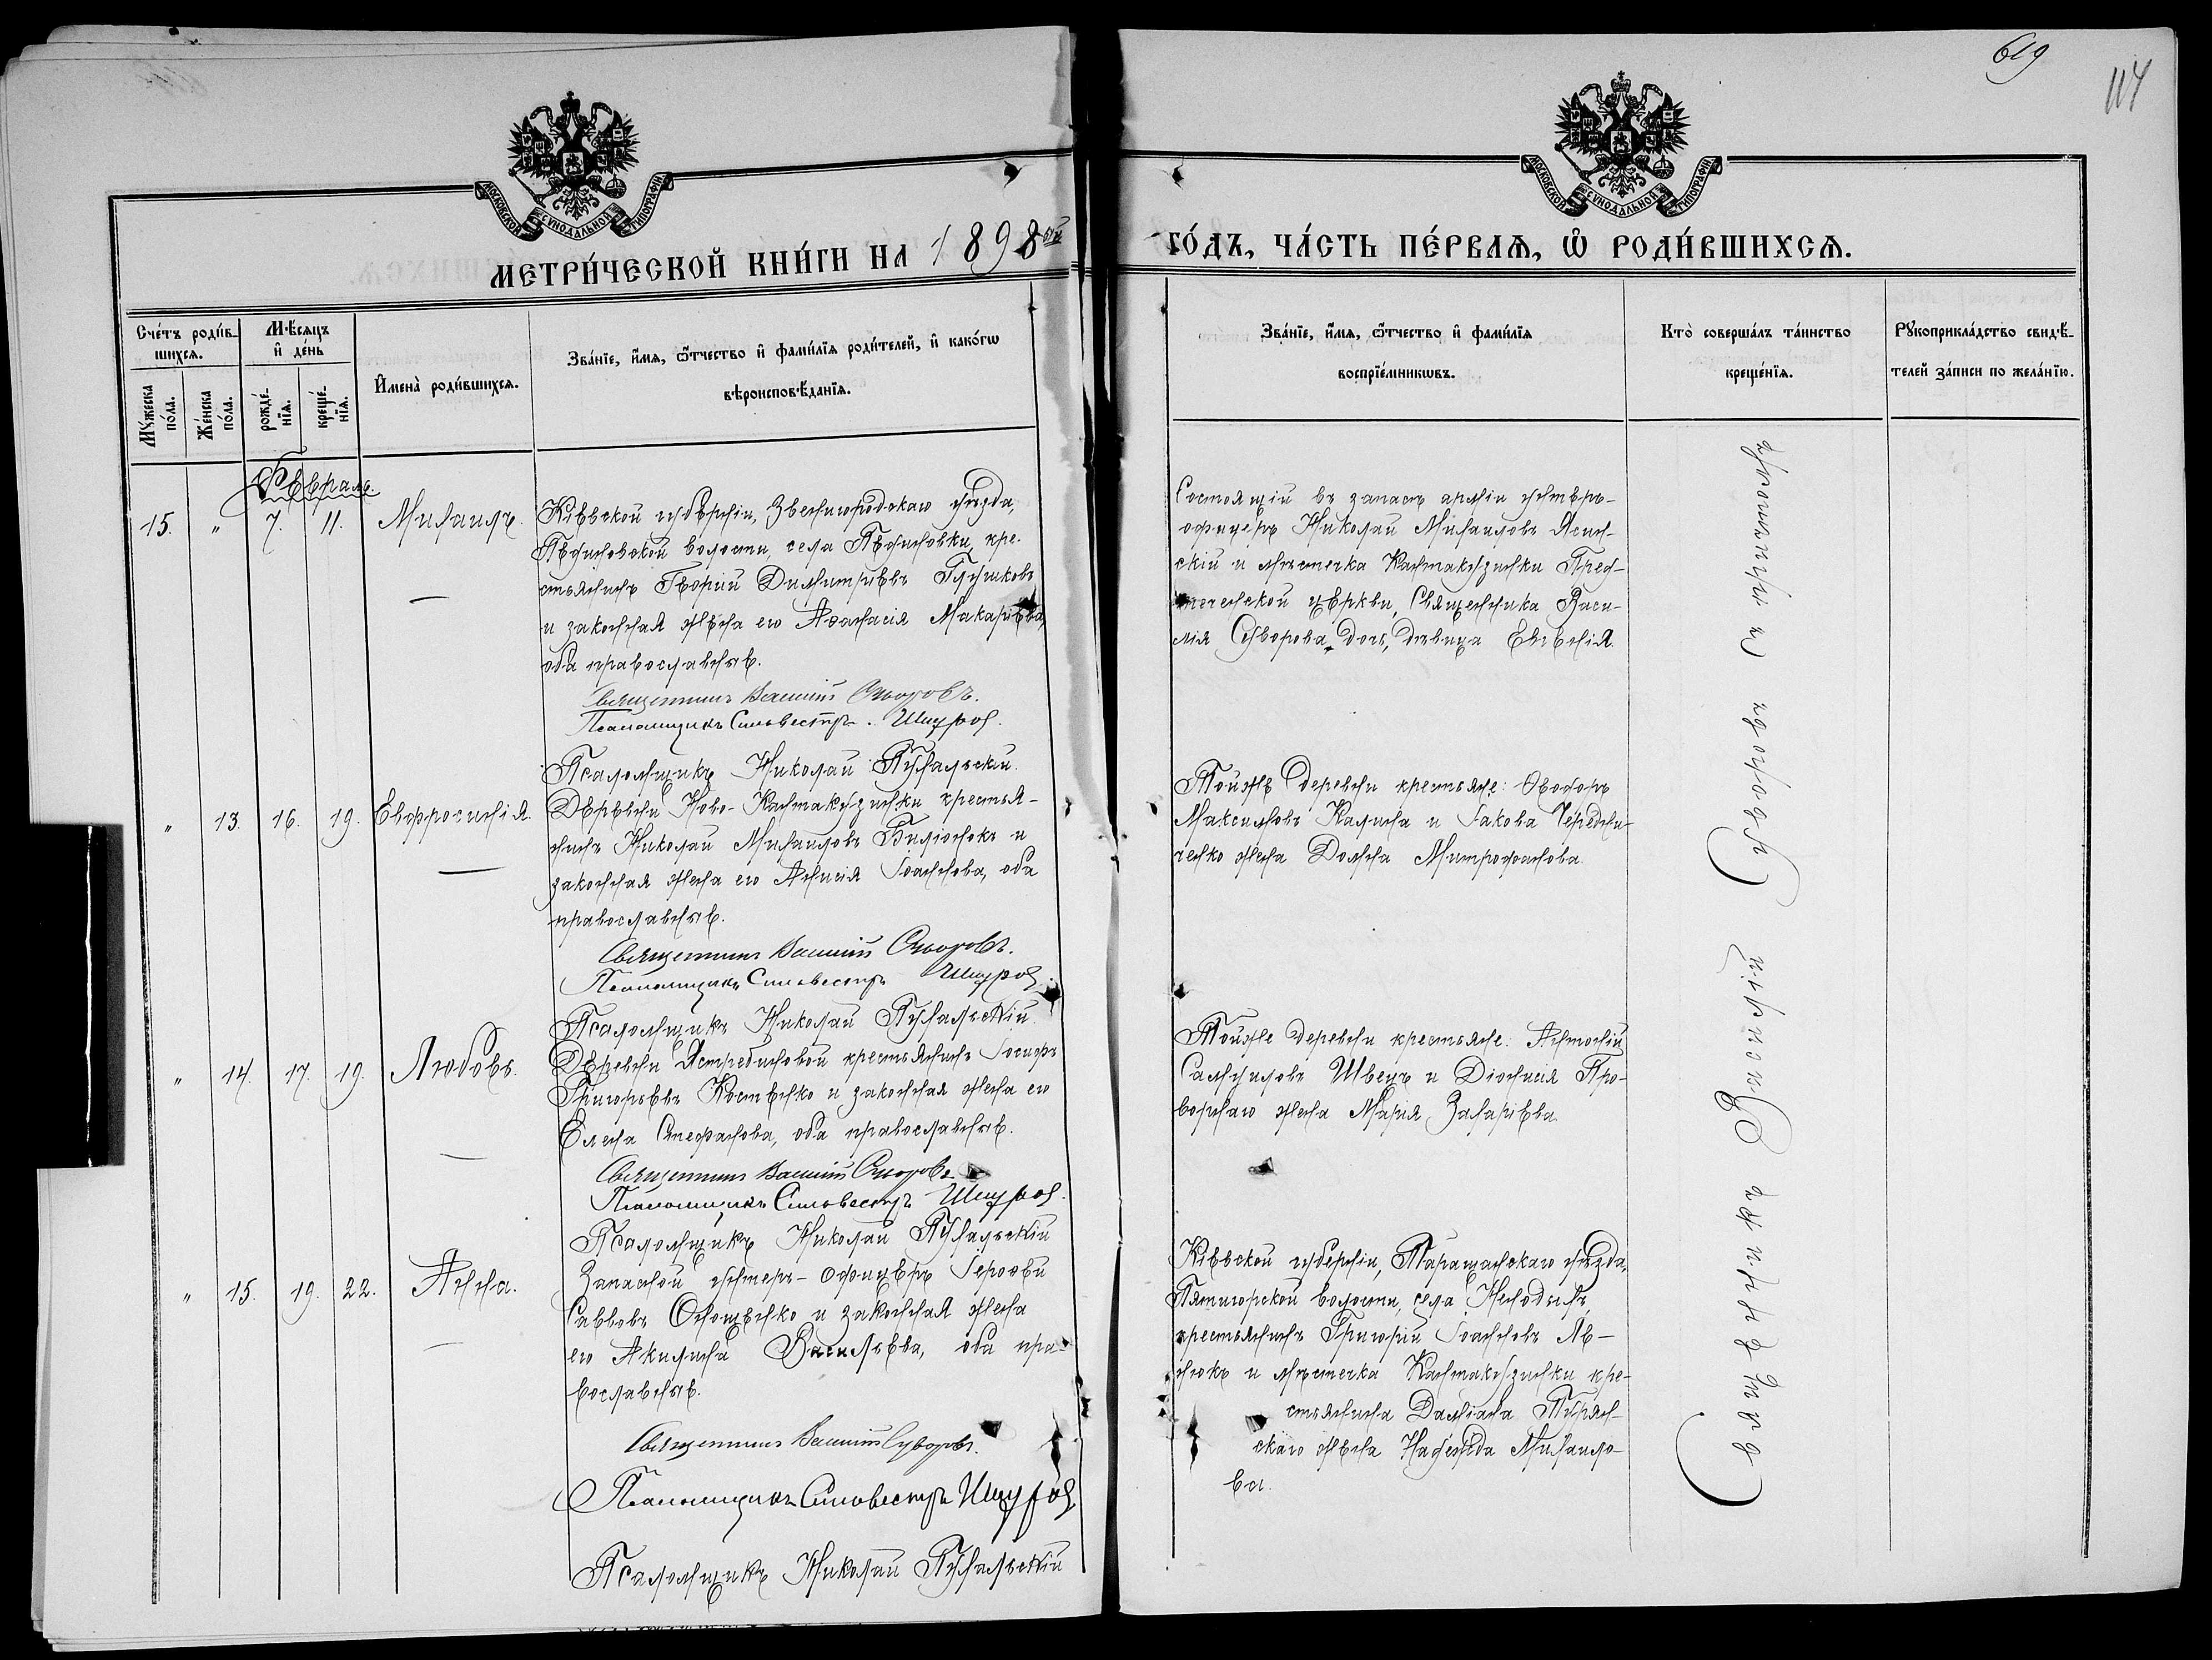 619
114
МОСКОВСКОЙ СѴНОДАЛЬНОЙ ТИПОГРАФІИ
МОСКОВСКОЙ СѴНОДАЛЬНОЙ ТИПОГРАФІИ
МЕТРИ́ЧЕСКОЙ КНИ́ГИ НА 1898ый ГО́ДЪ, ЧА́СТЬ ПЕ́РВАѦ, Ѡ РОДИ́ВШИХСѦ.
Сче́тъ роди́в-
шихсѧ.
Мꙋ́жеска по́ла.
Же́нска по́ла.
Мѣ́сѧцъ
и҆ де́нь
рожде́-
нїѧ.
креще́-
нїѧ.
И҆мена̀ роди́вшихсѧ.
Зва́нїе, и҆́мѧ, ѻ҆́тчество и҆ фами́лїѧ роди́телей, и҆ како́гѡ
вѣроисповѣ́данїѧ.
Зва́нїе, и҆́мѧ, ѻ҆́тчество и҆ фами́лїѧ
воспрїе́мникѡвъ.
Кто̀ соверша́лъ та́инство
креще́нїѧ.
Рꙋкоприкла́дство свидѣ́-
телей за́писи по жела́нїю.
Февраль.
15. " 7. 11. Михаилъ.
Кіевской губерніи, Звенигородскаго уѣзда,
волости, села кре-
стьянинъ Георгій Димитріевъ
и законная жена его Афанасія Макаріева,
оба православные.
Священникъ Василій Суворовъ.
Псаломщикъ Сильвестръ
Псаломщикъ Николай
Состоящій въ запасѣ арміи унтеръ-
офицеръ Николай Михаиловъ Ясин-
скій и мѣстечка Кантакузинки Пред-
теченской церкви, Священника Васи-
лія Суворова дочь, дѣвица Евгенія.
" 13. 16. 19. Евфросинія.
Деревни Ново-Кантакузинки крестья-
нинъ Николай Михаиловъ Билюнокъ и
законная жена его Анисія Іоаннова, оба
православные.
Священникъ Василій Суворовъ.
Псаломщикъ Сильвестръ
Псаломщикъ Николай
Тойже деревни крестьяне: Ѳеодоръ
Максимовъ Калина и Іакова Чередни-
ченко жена Домна Митрофанова.
" 14. 17. 19. Любовь.
Деревни Ястребиновой крестьянинъ Іосифъ
Григорьевъ Костенко и законная жена его
Елена Стефанова, оба православные.
Священникъ Василій Суворовъ.
Псаломщикъ Сильвестръ
Псаломщикъ Николай
Тойже деревни крестьяне: Антоній
Самуиловъ Швецъ и Діонисія Про-
ворнаго жена Марія Захаріева.
" 15. 19. 22. Анна.
Запасной унтеръ-офицеръ
Саввовъ и законная жена
его Акилина Васильева, оба пра-
вославные.
Священникъ Василій Суворовъ.
Псаломщикъ Сильвестръ
Псаломщикъ Николай
Кіевской губерніи, Таращанскаго уѣзда,
Пятигорской волости, села
крестьянинъ Григорій Іоанновъ Яв-
нюкъ и мѣстечка Кантакузинки кре-
стьянина Даміана Турян-
скаго жена Надежда Михаило-
ва.
Священникъ Василій Суворовъ съ причтомъ